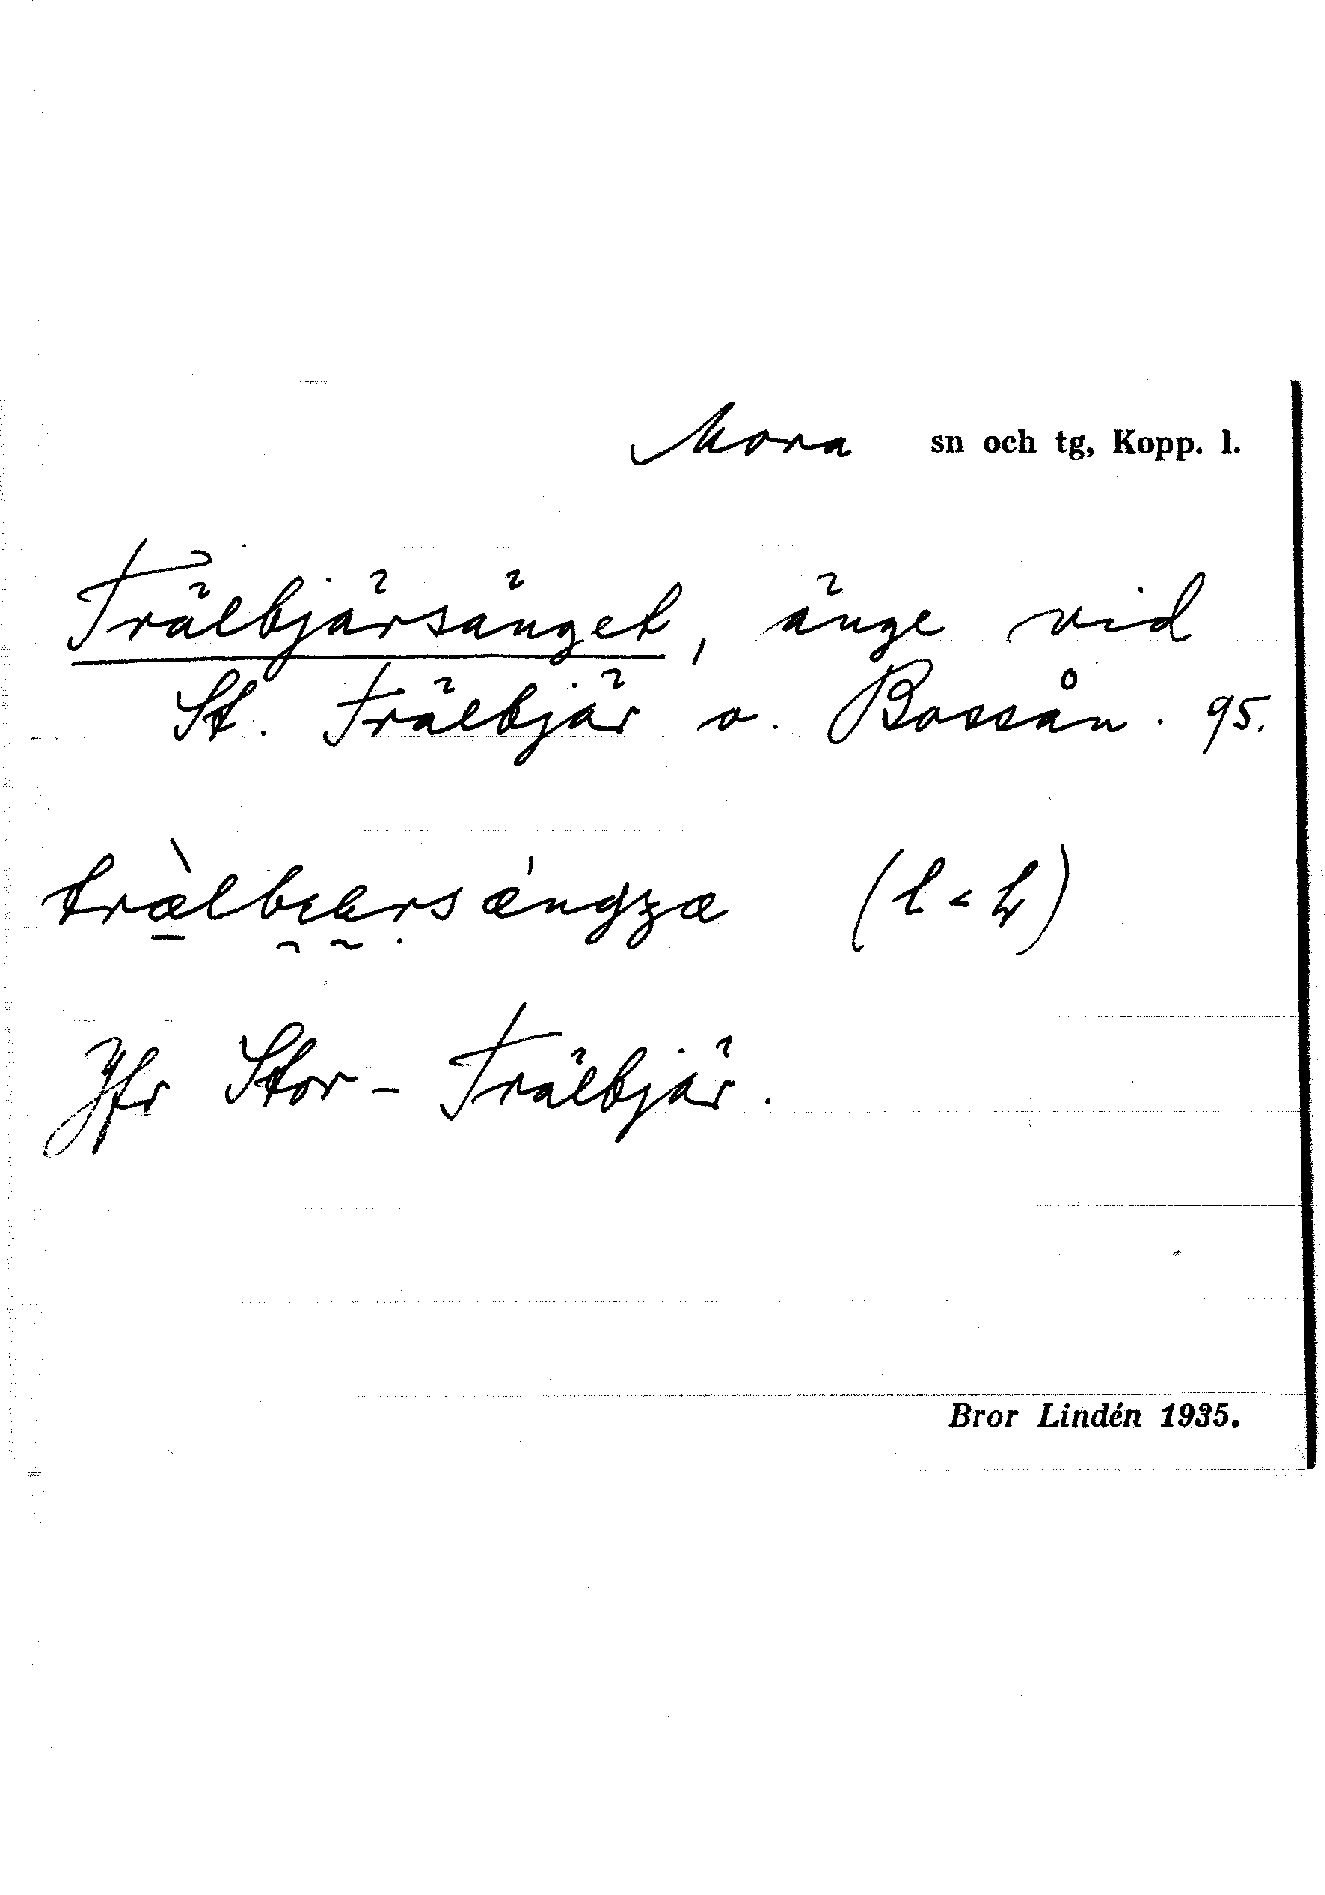 Mora sn och tg, Kopp. l.
Trälbjärsänget, änge vid
St. Trälbjär o. Bossån. 95.
(l = )
Jfr Stor-Trälbjär.
Bror Lindén 1935.